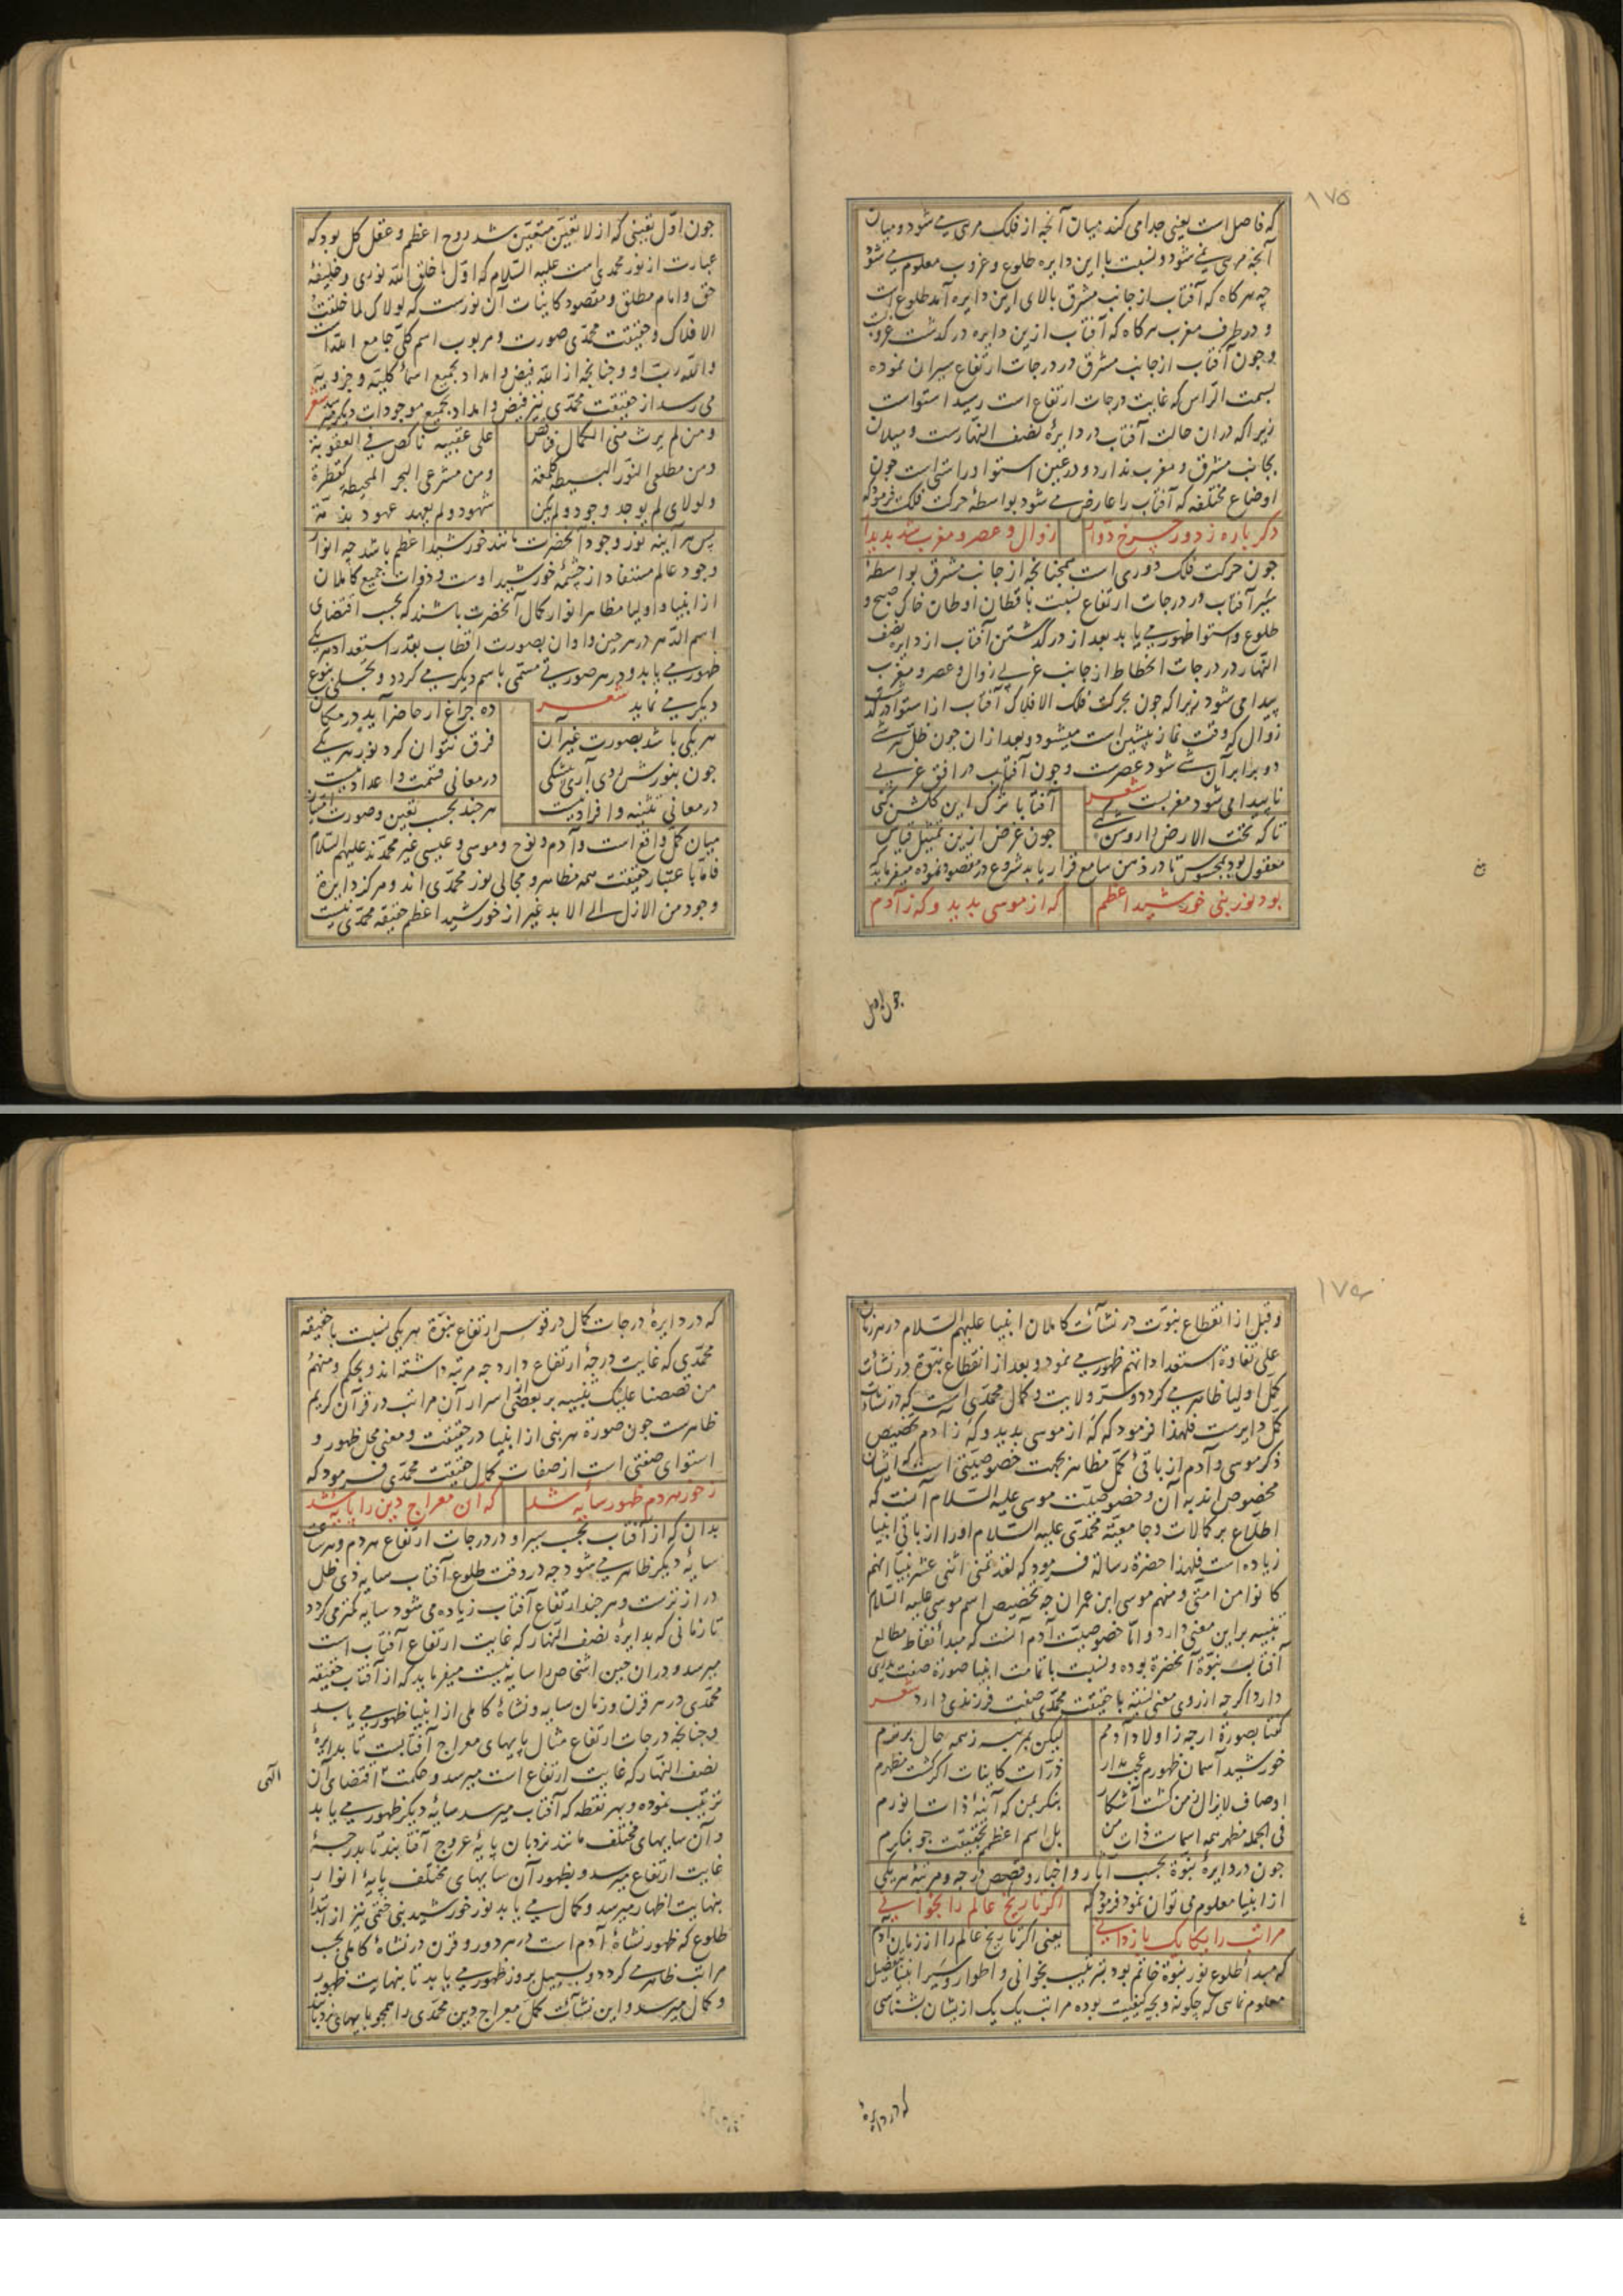 ۱۷۵
که فاصل است یعنی جدا می کند میان آنچه از فلک مری می شود و میان
آنچه مری نمی شود و نسبت با این دایره طلوع و غروب معلوم می شود
چه هرگاه که آفتاب از جانب مشرق بالای این دایره آمد طلوع است
و در طرف مغرب هرگاه که آفتاب ازین دایره در گذشت غروبست
و چون آفتاب از جانب مشرق در درجات ارتفاع سیران نموده
بسمت الراس که غایت درجات ارتفاع است رسید استواست
زیرا که دران حالت آفتاب در دایرهٔ نصف النهارست و میلان
بجانب مشرق و مغرب ندارد و در عین استوا و راستی است چون
اوضاع مختلفه که آفتاب را عارض می شود بواسطهٔ حرکت فلک فرمود که
دگر باره ز دور چرخ دوار
زوال و عصر و مغرب شد پدیدار
چون حرکت فلک دوری است همچنانچه از جانب مشرق بواسطهٔ
سیر آفتاب در درجات ارتفاع نسبت با قطان اوطان خاک صبح و
طلوع و استوا ظهور می یابد بعد از درگذشتن آفتاب از دایره نصف
النهار در درجات انحطاط از جانب غربی زوال و عصر و مغرب
پیدا می شود زیرا که چون بحرکت فلک الافلاک آفتاب از استوا درگذشت
زوال که وقت نماز پیشین است میشود و بعد ازان چون ظل هر شی
دو برابر آن شی شود عصرست و چون آفتاب در افق غربی
ناپیدا می شود مغربست شعر
آفتابا ترک این گلشن کنی
تا که تحت الارض را روشن کنی
چون غرض ازین تمثیل قیاس
معقول بود بمحسوس تا در ذهن سامع قرار یابد شروع در مقصود نموده میفرماید که
بود نور نبی خورشید اعظم
که از موسی پدید و که ز آدم
چون اول
چون اول تعینی که از لا تعین متعین شد روح اعظم و عقل کل بود که
عبارت از نور محمدی است علیه السلام که اول ما خلق الله نوری و خلیفهٔ
حق و امام مطلق و مقصود کاینات آن نورست که لولاک لما خلقت
الافلاک و حقیقت محمدی صورت و مربوب اسم کلی جامع الله است
والله رب او و چنانچه از الله فیض و امداد بجمیع اسماء کلیه و جزویه
می رسد از حقیقت محمدی نیز فیض و امداد بجمیع موجودات دیگر میرسد شعر
و من لم یرث منی الکمال فناقص
علی عقبیه ناکص فی العقوبة
و من مطلعی النور البسیط کلمعة
و من مشرعی البحر المحیط کقطرة
و لولای لم یوجد وجود و لم یکن
شهود و لم یعهد عهود بذمة
پس هر آینه نور وجود آنحضرت مانند خورشید اعظم باشد چه انوار
وجود عالم مستفاد از چشمهٔ خورشید اوست و ذوات جمیع کاملان
از انبیا و اولیا مظاهر انوار کمال آنحضرت باشند که بحسب اقتضای
اسم الدهر در هر حین و اوان بصورت اقطاب بقدر استعداد هر یکی
ظهور می یابد و در هر صورتی مسمی باسم دیگر می گردد و بتجلی نوع
دیگر می نماید شعر
ده چراغ ار حاضر آید در مکان
هر یکی باشد بصورت غیر آن
فرق نتوان کرد نور هر یکی
چون بنورش روی آری بیشکی
در معانی قسمت و اعداد نیست
در معانی تثنیه و افراد نیست
هر چند بحسب تعین و صورت امتیاز
میان کمل واقع است و آدم و نوح و موسی و عیسی غیر محمدند علیهم السلام
فاما باعتبار حقیقت همه مظاهر و مجالی نور محمدی اند و مرکز دایرهٔ
وجود من الازل الی الابد غیر از خورشید اعظم حقیقة محمدی نیست
۱۷۶
و قبل از انقطاع نبوت در نشآت کاملان انبیا علیهم السلام در هر زمان
علی تفاوة استعداداتهم ظهور می نمود و بعد از انقطاع نبوة در نشآت
کمل اولیا ظاهر می گردد و سر ولایت و کمال محمدی است که در نشآت
کل دایرست فلهذا فرمود که که از موسی پدید و که ز آدم تخصیص
ذکر موسی و آدم از باقئ کمل مظاهر بجهت خصوصیتی است که ایشان
مخصوص اند به آن و خصوصیت موسی علیه السلام آنست که
اطلاع بر کمالات و جامعیة محمدی علیه السلام او را از باقی انبیا
زیاده است فلهذا حضرة رسالة فرمود که لقد تمنی اثنی عشر نبیا انهم
کانوا من امتی و منهم موسی ابن عمران چه تخصیص اسم موسی علیه السلام
تنبیه بر این معنی دارد و اما خصوصیت آدم آنست که مبداء نقاط مطالع
آفتاب نبوة آنحضرة بوده و نسبت با تمامت انبیا صورة صفت پدری
دارد اگرچه از روی معنی نسبة با حقیقت محمدی صفت فرزندی دارد شعر
گفتا بصورة ارچه ز اولاد آدمم
لیکن بمرتبه ز همه حال برترم
خورشید آسمان ظهورم عجب مدار
ذرات کاینات اگر گشت مظهرم
اوصاف لایزال ز من گشت آشکار
بنگر بمن که آینهٔ ذات انورم
فی الجمله مظهر همه اسماست ذات من
بل اسم اعظم بحقیقت چو بنگرم
چون در دایرهٔ نبوة بحسب آثار و اخبار و قصص درجه و مرتبهٔ هر یکی
از انبیا معلوم می توان نمود فرمود که
اگر تاریخ عالم را بخوانی
مراتب را یکایک باز دانی
یعنی اگر تاریخ عالم را از زمان آدم
که مبدأ طلوع نور نبوة خاتم بود بترتیب بخوانی و اطوار و سیر انبیا بتفصیل
معلوم نمائی که چگونه و بچه کیفیت بوده مراتب یک یک از ایشان بشناسی
که در دایرهٔ
که در دایرهٔ درجات کمال در قوس ارتفاع نبوة هر یکی نسبت با حقیقة
محمدی که غایت درجهٔ ارتفاع دارد چه مرتبه داشته اند و بحکم و منهم
من قصصنا علیک تنبیه بر بعضی از اسرار آن مراتب در قرآن کریم
ظاهرست چون صورة هر نبی از انبیا در حقیقت و معنی محل ظهور و
استوای صفتی است از صفات کمال حقیقت محمدی فرمود که
ز خور هر دم ظهور سایهٔ شد
که آن معراج دین را پایهٔ شد
بدان که از آفتاب بحسب سیر او در درجات ارتفاع هر دم و هر ساعت
سایهٔ دیگر ظاهر می شود چه در وقت طلوع آفتاب سایه ذی ظل
درازترست و هر چند ارتفاع آفتاب زیاده می شود سایه کمتر می گردد
تا زمانی که بدایرهٔ نصف النهار که غایت ارتفاع آفتاب است
میرسد و دران حین اشخاص را سایه نیست میفرماید که از آفتاب حقیقة
محمدی در هر قرن و زمان سایه و نشاهٔ کاملی از انبیا ظهور می یابد
و چنانچه درجات ارتفاع مثال پایهای معراج آفتابست تا بدایرهٔ
نصف النهار که غایت ارتفاع است میرسد و حکمت اقتضای آن
الهی
ترتیب نموده و بهر نقطه که آفتاب میرسد سایهٔ دیگر ظهور می یابد
و آن سایهای مختلف مانند نردبان پایهٔ عروج آفتابند تا بدرجهٔ
غایت ارتفاع میرسد و بظهور آن سایهای مختلف پایهٔ انوار
بنهایت اظهار میرسد و کمال می یابد نور خورشید نبی ختمی نیز از ابتدا
طلوع که ظهور نشاهٔ آدم است در هر دور و قرن در نشاهٔ کاملی بحسب
مراتب ظاهر می گردد و بسبیل بروز ظهور می یابد تا بنهایت ظهور
و کمال میرسد و این نشآت کمل معراج دین محمدی را همچو پایهای نردبانند